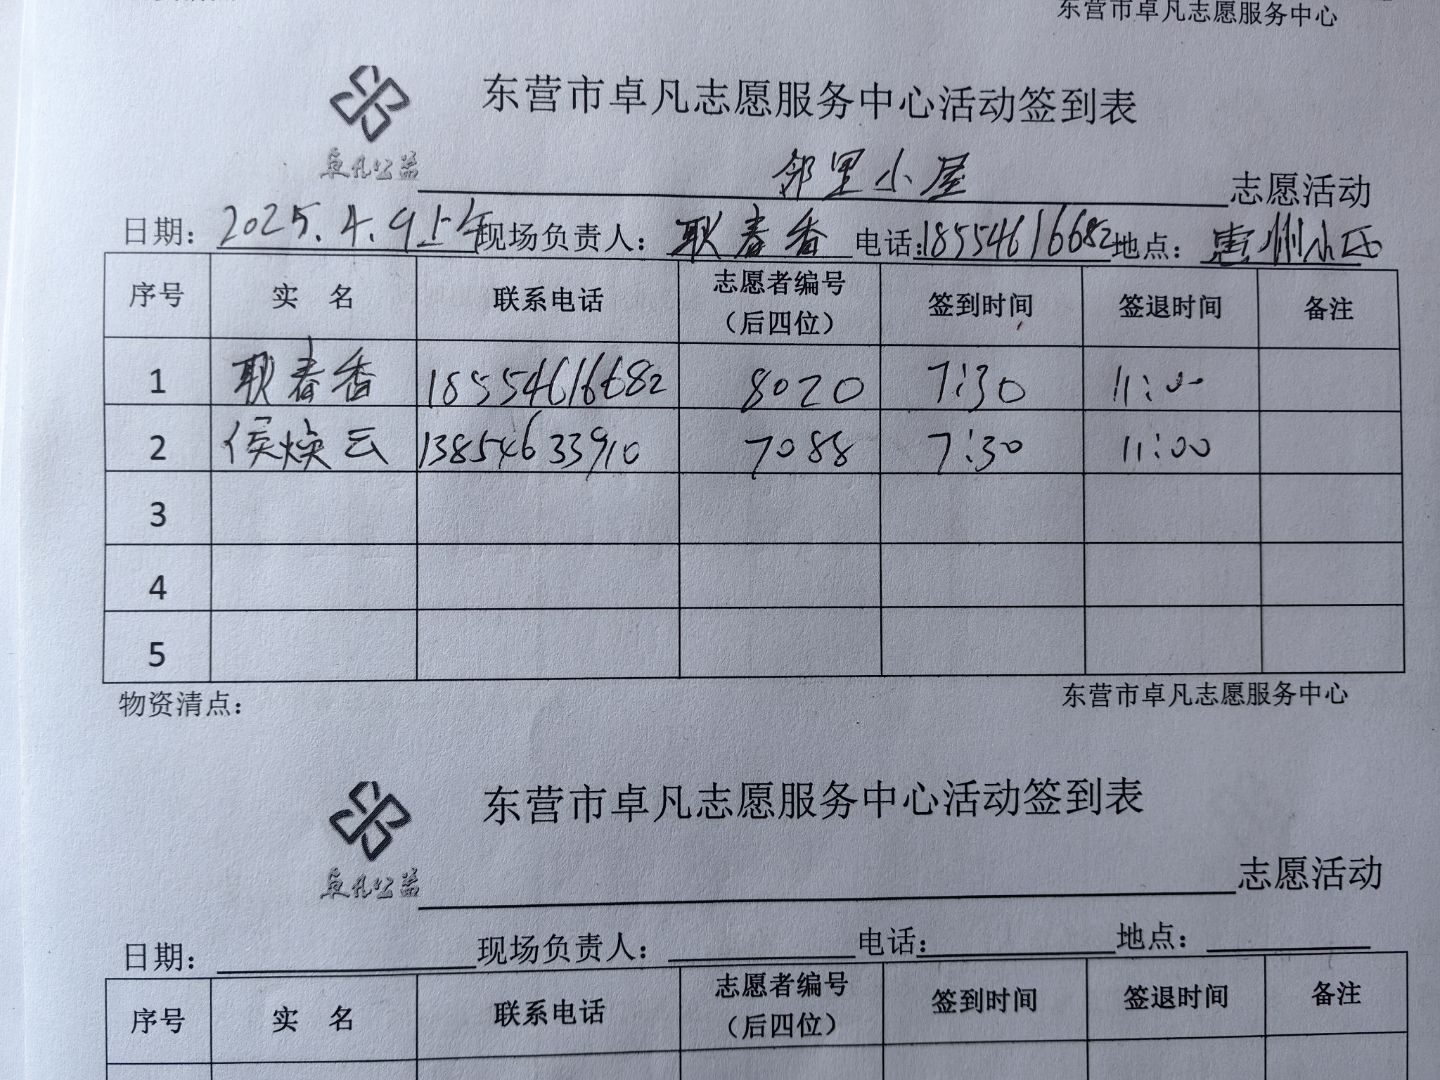 东营市卓凡志愿服务中心
东营市卓凡志愿服务中心活动签到表
卓凡公益
邻里小屋 志愿活动
日期：2025.4.9上午 现场负责人：耿春香 电话：18554616682 地点：惠州小区
序号 实 名 联系电话 志愿者编号（后四位） 签到时间 签退时间 备注
1 耿春香 18554616682 8020 7:30 11:00
2 侯焕云 13854633910 7088 7:30 11:00
3
4
5
物资清点： 东营市卓凡志愿服务中心
东营市卓凡志愿服务中心活动签到表
卓凡公益
志愿活动
日期： 现场负责人： 电话： 地点：
序号 实 名 联系电话 志愿者编号（后四位） 签到时间 签退时间 备注